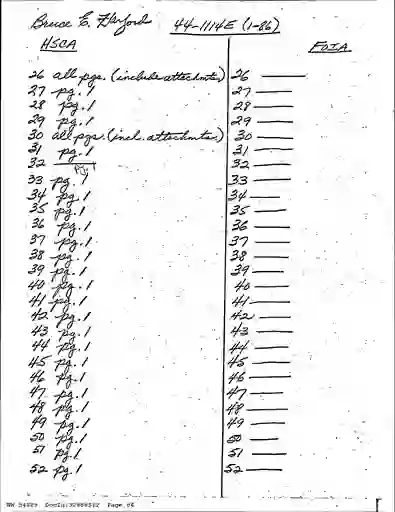 Bruce E. 44-1114E (1-86)
HSCA FOIA
26 all pgs. (include attachmts.) 26 —
27 pg. 1 27 —
28 pg. 1 28 —
29 pg. 1 29 —
30 all pgs. (incl. attachmts.) 30 —
31 pg. 1 31 —
32 — 32 —
33 pg. 1 33 —
34 pg. 1 34 —
35 pg. 1 35 —
36 pg. 1 36 —
37 pg. 1 37 —
38 pg. 1 38 —
39 pg. 1 39 —
40 pg. 1 40 —
41 pg. 1 41 —
42 pg. 1 42 —
43 pg. 1 43 —
44 pg. 1 44 —
45 pg. 1 45 —
46 pg. 1 46 —
47 pg. 1 47 —
48 pg. 1 48 —
49 pg. 1 49 —
50 pg. 1 50 —
51 pg. 1 51 —
52 pg. 1 52 —
Page